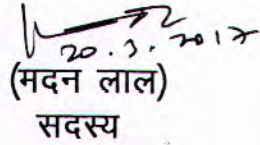 20.3.2017
(मदन लाल)
सदस्य